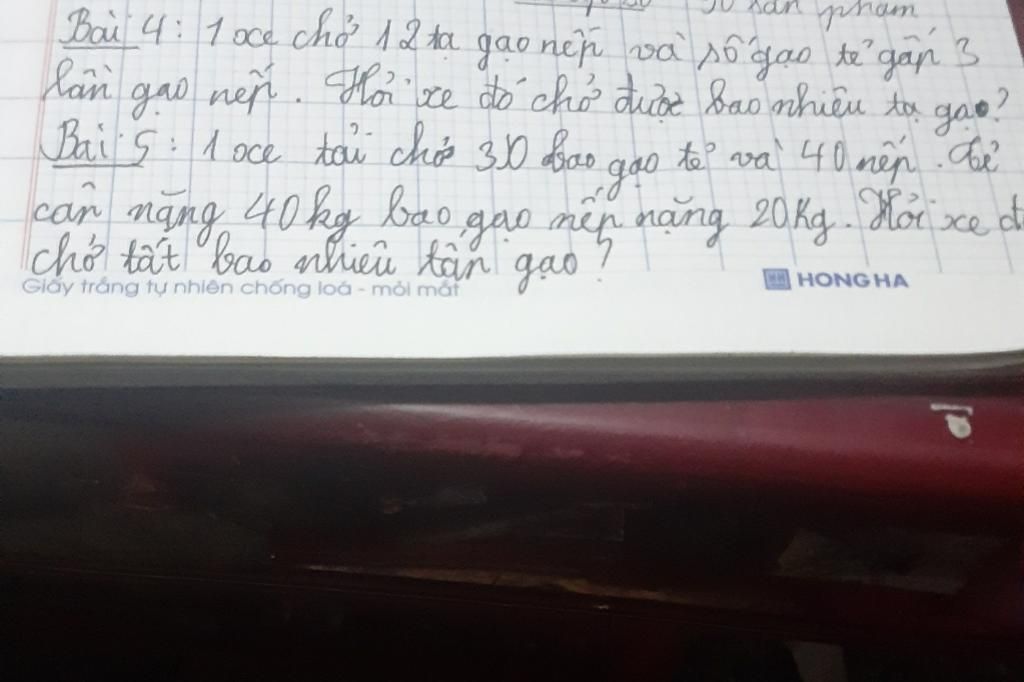 30 sản phẩm
Bài 4: 1 xe chở 12 tạ gạo nếp và số gạo tẻ gấp 3
lần gạo nếp. Hỏi xe đó chở được bao nhiêu tạ gạo?
Bài 5: 1 xe tải chở 30 bao gạo tẻ và 40 nếp. tẻ
cân nặng 40kg bao gạo nếp nặng 20Kg. Hỏi xe đ
chở tất bao nhiêu tấn gạo?
Giấy trắng tự nhiên chống loá - mỏi mắt
HH HONG HA